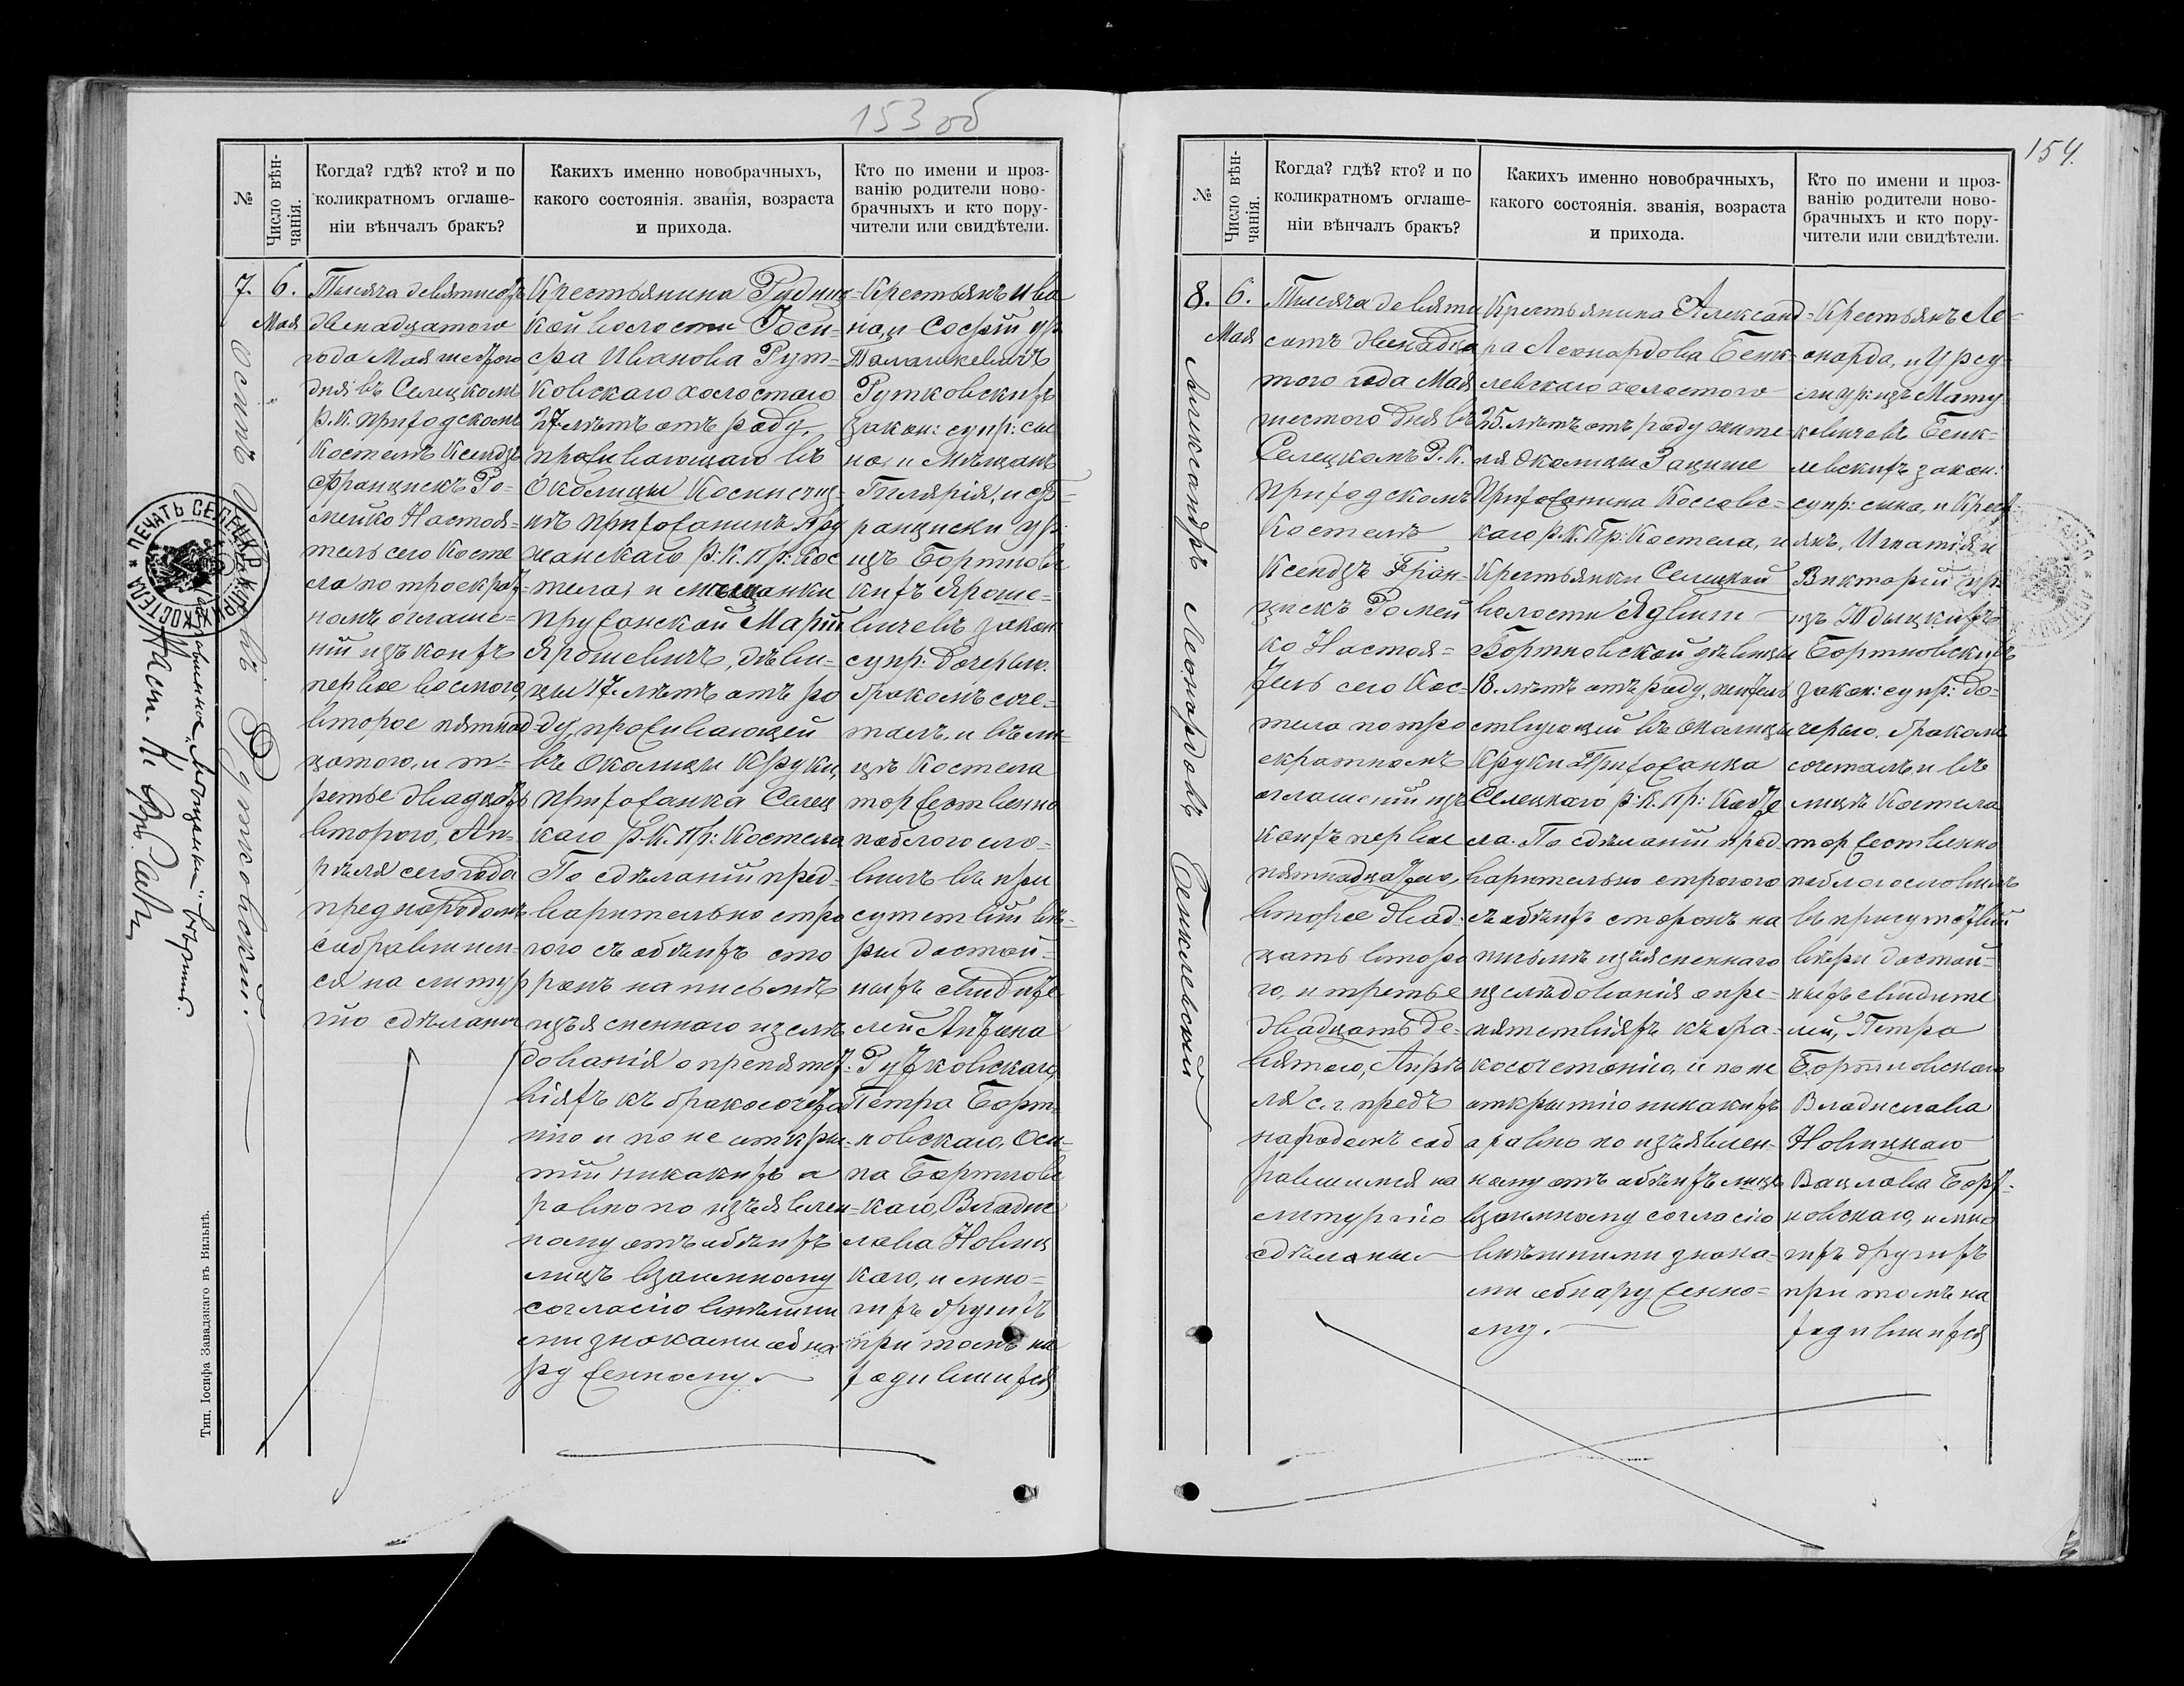 153 об
№
Число вѣн-
чанія.
Когда? гдѣ? кто? и по
коликратномъ оглаше-
ніи вѣнчалъ бракъ?
Какихъ именно новобрачныхъ,
какого состоянія. званія, возраста
и прихода.
Кто по имени и проз-
ванію родители ново-
брачныхъ и кто пору-
чители или свидѣтели.
7.
6.
Мая
Осипъ Ивановъ Рутковскій.
Тысяча девятисотъ
двенадцатого
года Мая шестого
дня въ Селецкомъ
Р. К. приходскомъ
Костелѣ Ксендзъ
Францискъ Ро-
мейко Настоя-
тель сего Косте
ла по троекрат-
номъ оглаше-
ніи изъ коихъ
первое восмого,
второе пятнад
цатого, и т-
ретье двадцать
второго, Ап-
рѣля сего года
предъ народомъ
собравшим-
ся на литур
гію сдѣланы
Крестьянина Рудниц-
кой волости Іоси-
фа Иванова Рут-
ковскаго холостаго
27 лѣтъ отъ роду,
проживающаго въ
Околицы Косински
прихожанинъ Пру
жанскаго Р: К. Пр: Кос
тела, и мѣщанки
Пружанской Маріи
Ярошевичъ, дѣви-
цы 17. лѣтъ отъ ро
ду, проживающей
въ Околицы Круки,
прихожанка Селец
каго Р. К. Пр: Костела
По сдѣланіи пред-
варительно стро
гого съ обѣихъ сто
ронъ на письмѣ
изъясненнаго изслѣ
дованія о препятст-
віяхъ къ бракосочета
нію и по не откры-
тіи никакихъ а
равно по изъявлен-
ному отъ обѣихъ
лицъ взаимному
согласію внѣшни
ми знаками обна
руженному.
Крестьянъ Ива
на, и Софіи ур:
Талашкевичъ
Рутковскихъ
закон: супр: сы
на, и Мѣщанъ
Гилярія, и Ф-
ранциски ур:
изъ Бортновс
кихъ Яроше-
вичевъ закон
супр: дочерью.
бракомъ соче-
талъ, и въ ли-
цѣ Костела
торжественно
поблагосло-
вилъ въ при
сутствіи вѣ-
ры достой-
ныхъ свидѣте
лей Антона
Рутковскаго,
Петра Борт-
новскаго, Оси-
па Бортновс
каго, Владис
лава Новиц
каго, и мно-
гихъ другихъ
при томъ на
ходившихся
ПЕЧАТЬ СЕЛЕЦК. Р. К. ПРИХ. КОСТЕЛА
Тип. Іосифа Завадзкаго въ Вильнѣ.
154.
№
Число вѣн-
чанія.
Когда? гдѣ? кто? и по
коликратномъ оглаше-
ніи вѣнчалъ бракъ?
Какихъ именно новобрачныхъ,
какого состоянія. званія, возраста
и прихода.
Кто по имени и проз-
ванію родители ново-
брачныхъ и кто пору-
чители или свидѣтели.
8.
6.
Мая
Александръ Леонардовъ Бенклевскій
Тысяча девяти
сотъ двенадца
того года Мая
шестого дня въ
Селецкомъ Р. К.
приходскомъ
Костелѣ
Ксендзъ Фран-
цискъ Ромей
ко Настоя-
тель сего Кос-
тела по тро
екратномъ
оглашеніи изъ
коихъ первое
пятнадцатого,
второе двад-
цать второ
го, и третье
двадцать де-
вятого, Апрѣ
ля с. г. предъ
народомъ соб
равшимся на
литургію
сдѣланы
Крестьянина Александ-
ра Леонардова Бенк-
левскаго холостого
25. лѣтъ отъ роду жите-
ля Околицы Зацише
Прихожанина Коссовс-
каго Р. К. Пр: Костела, и
Крестьянки Селецкой
волости Ядвиги
Бортновской дѣвицы
18. лѣтъ отъ роду, житель
ствующей въ Околицы
Круки Прихожанка
Селецкаго Р: К. Пр: Косте
ла. По сдѣланіи пред-
варительно строгого
съ обѣихъ сторонъ на
письмѣ изъясненнаго
изслѣдованія о пре-
пятствіяхъ къ бра-
косочетанію, и по не
открытію никакихъ
а равно по изъявлен-
ному отъ обѣихъ лицъ
взаимному согласію
внѣшними знака-
ми обнаруженно-
му.
Крестьянъ Ле-
онарда, и Урсу-
ли ур: изъ Мату
кевичевъ Бенк-
левскихъ закон:
супр: сына, и Крест
янъ, Игнатія и
Викторіи ур:
изъ Юдыцкихъ
Бортновскихъ
закон: супр: до-
черью, бракомъ
сочеталъ и въ
лицѣ Костела
торжественно
поблагословилъ
въ присутствіи
вѣры достой-
ныхъ свидите
лей, Петра
Бортновскаго
Владислава
Новицкаго
Вацлава Борт-
новскаго, и мно
гихъ другихъ
при томъ на
ходившихся